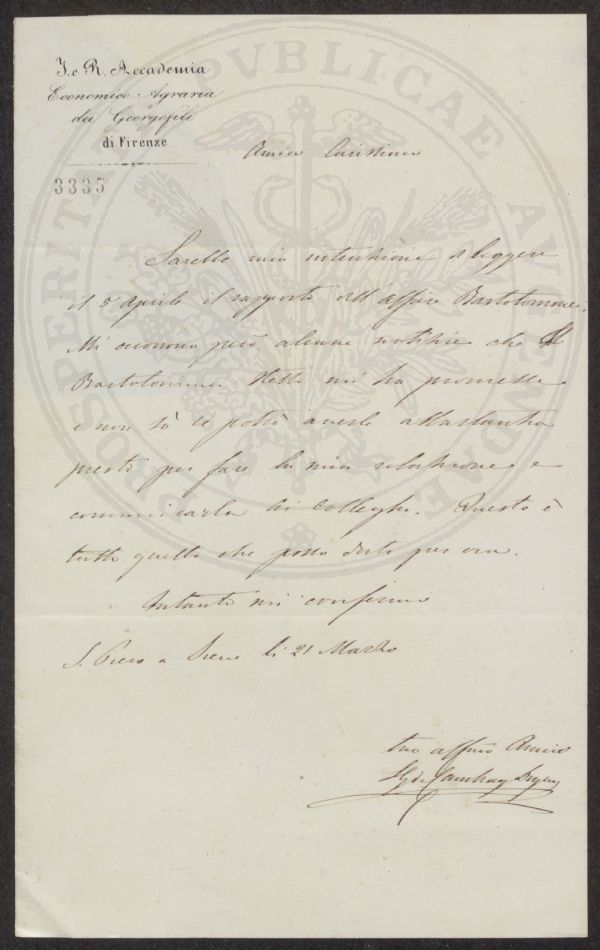 I. e R. Accademia
Economico Agraria
dei Georgofili
di Firenze
3335
PROSPERITATI REIPUBLICAE AUGENDAE
Amico Carissimo
Sarebbe mia intenzione di leggere
il 5 Aprile il rapporto dell'affare Bartolommei.
Mi occorrono però alcune notizie che il
Bartolommei stesso mi ha promesse
e non sò se potrò averle abbastanza
presto per fare la mia relazione e
comunicarla ai Colleghi. Questo è
tutto quello che posso dirti per ora.
Intanto mi confermo
S. Piero a Sieve li 21 Marzo
tuo affmo Amico
Cambray Digny